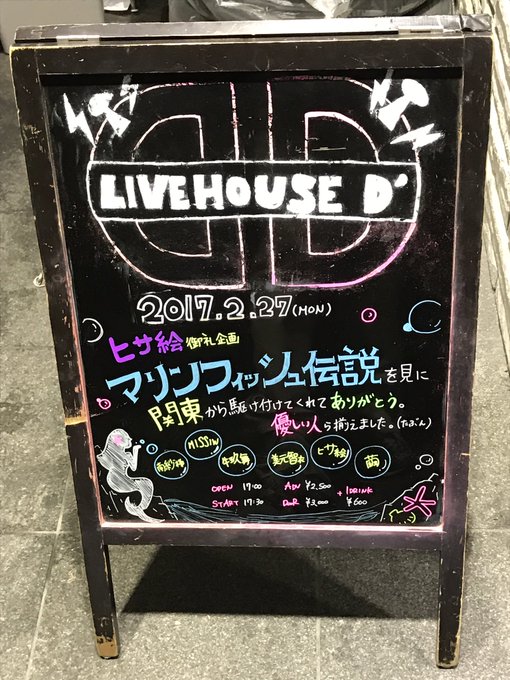 LIVEHOUSE D'
2017.2.27(MON)
ヒサ絵 御礼企画
マリンフィッシュ伝説を見に
関東から駆け付けてくれてありがとう。
優しい人ら揃えました。(たぶん)
MISSIW
美元智衣
ヒサ絵
繭
OPEN 17:00 ADV ¥2,500 + 1DRINK
START 17:30 DOOR ¥3,000 ¥600